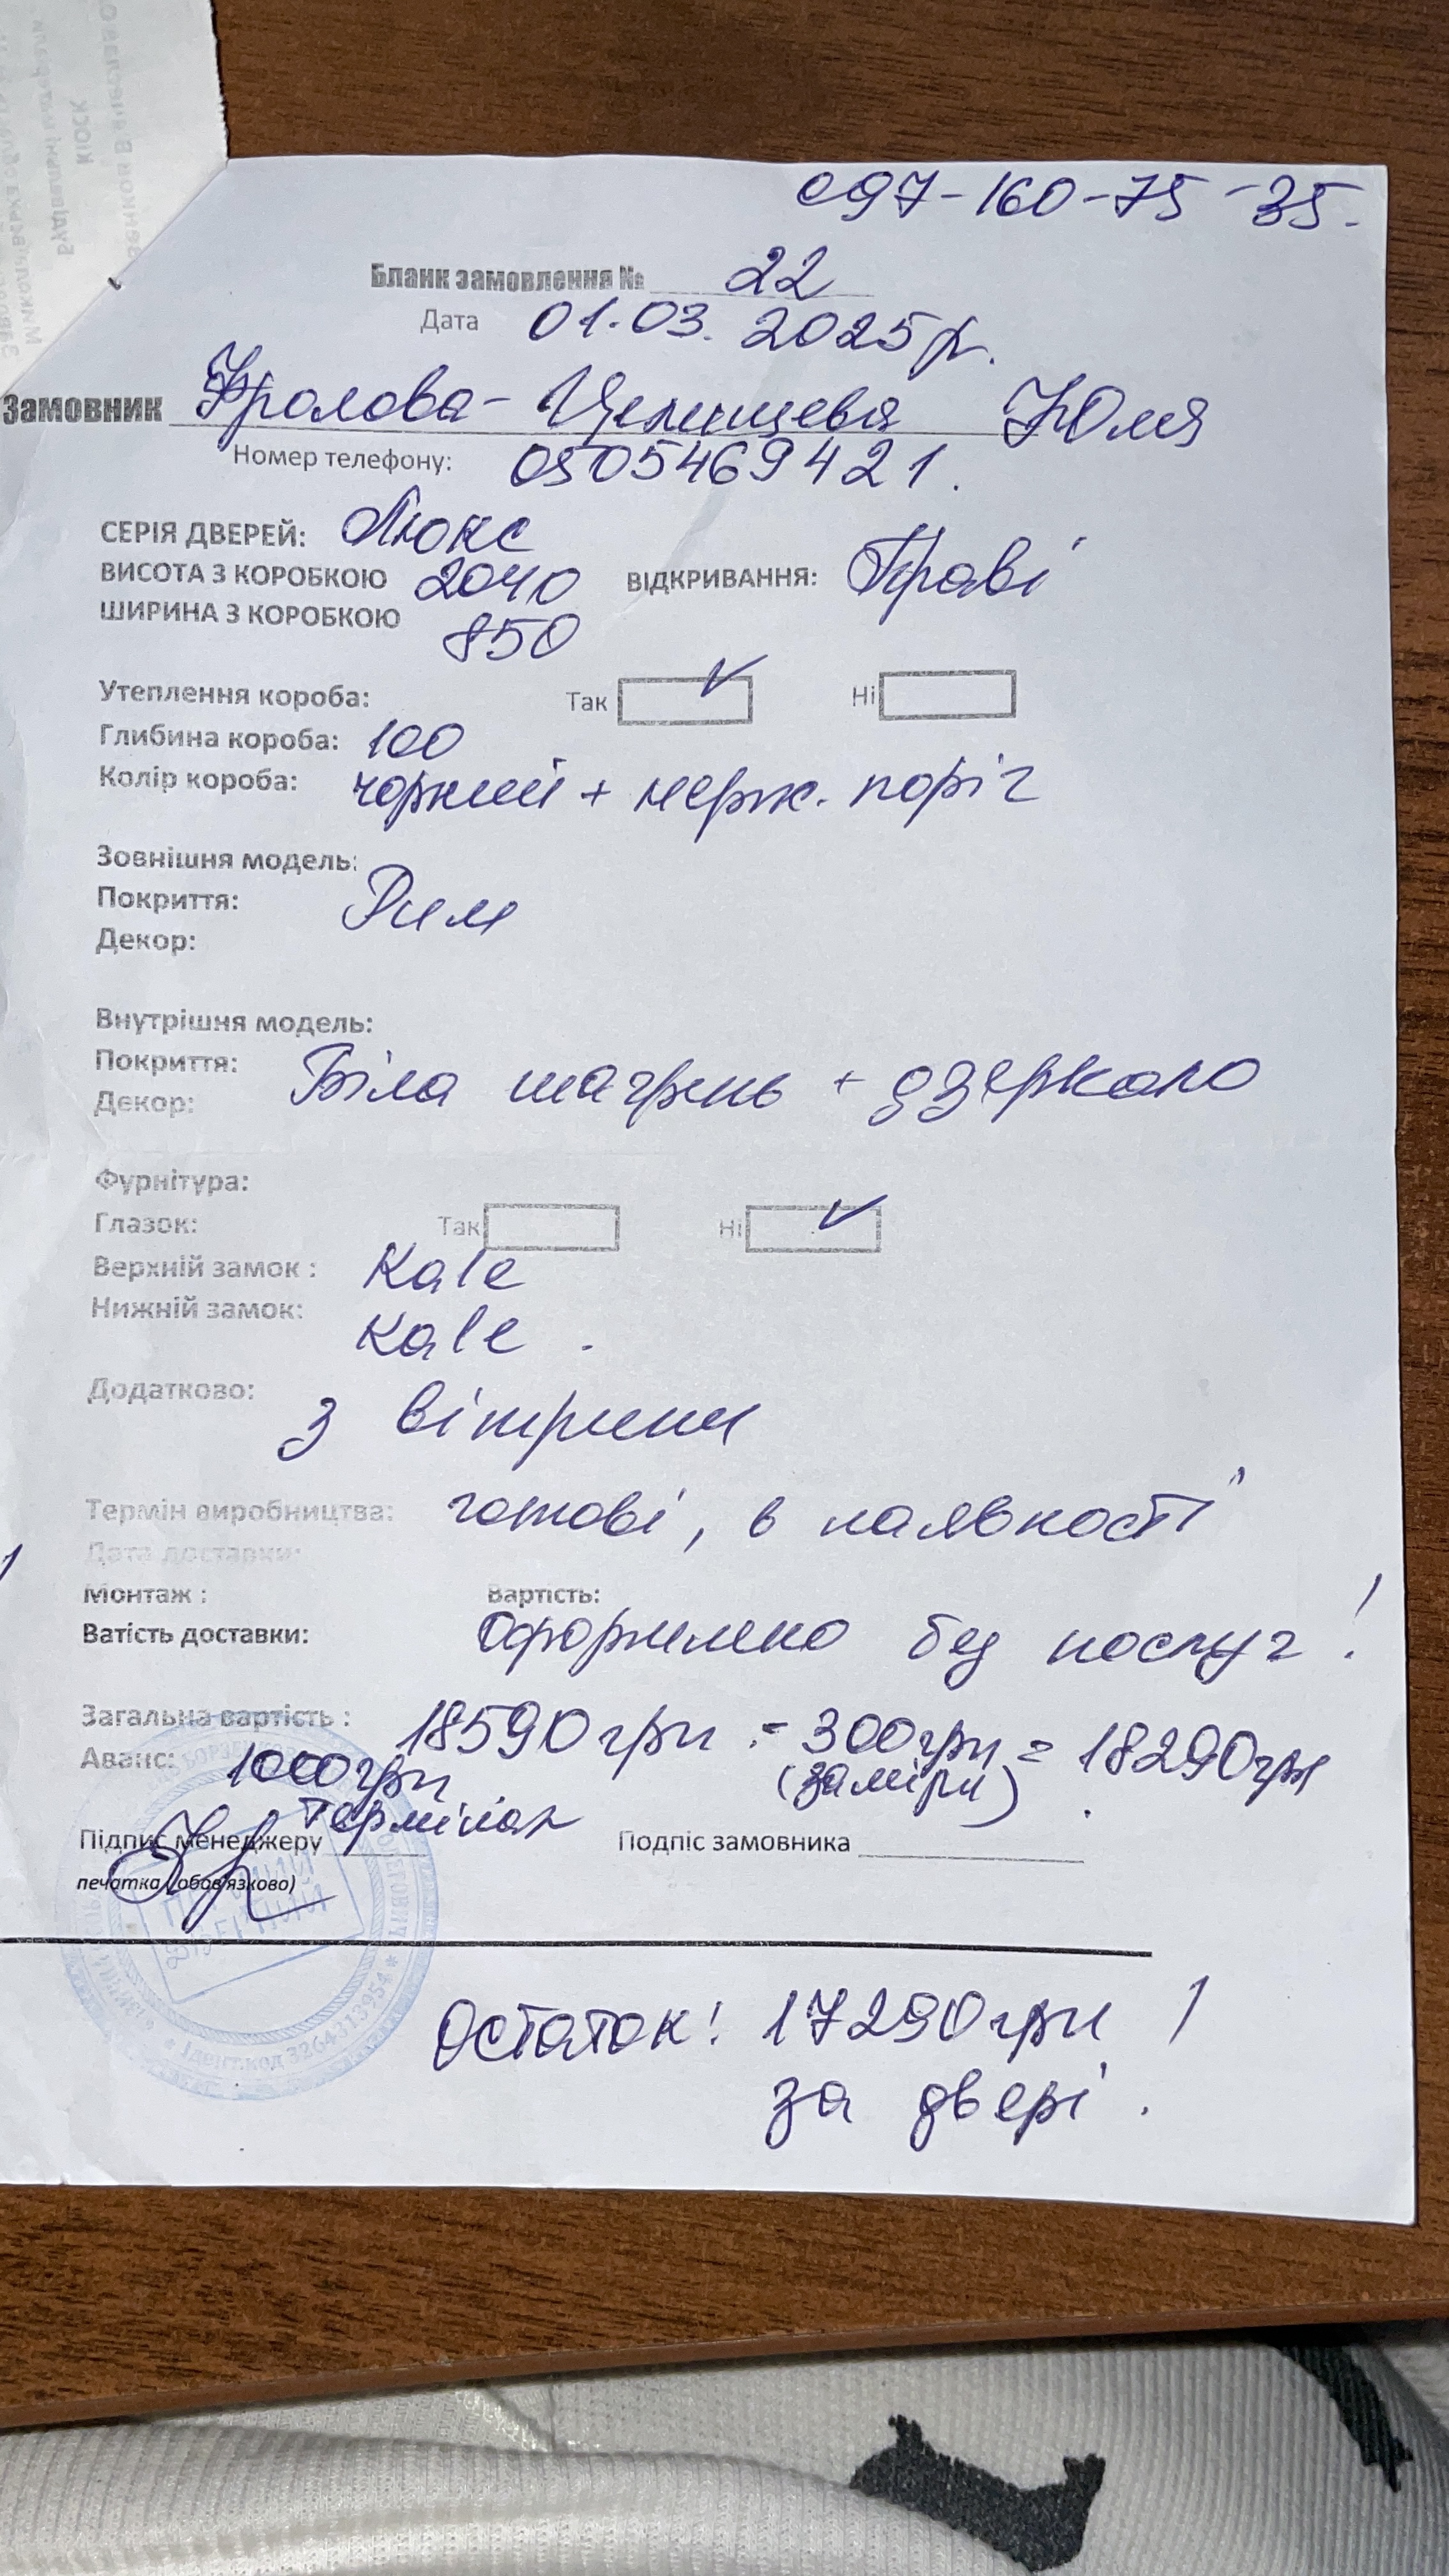 097-160-75-35.
Бланк замовлення № 22
Дата 01.03.2025р.
Замовник Фролова- Целищева Юлія
Номер телефону: 0505469421.
СЕРІЯ ДВЕРЕЙ: Люкс
ВИСОТА З КОРОБКОЮ 2040 ВІДКРИВАННЯ: Праві
ШИРИНА З КОРОБКОЮ 850
Утеплення короба: Так ✓ Ні
Глибина короба: 100
Колір короба: чорний + нерж. поріг
Зовнішня модель:
Покриття: Рим
Декор:
Внутрішня модель:
Покриття:
Декор: Біла шагрень + дзеркало
Фурнітура:
Глазок: Так Ні ✓
Верхній замок : Kale
Нижній замок: Kale .
Додатково: з вітрини
Термін виробництва: готові, в наявності
Дата доставки:
Монтаж : Вартість:
Ватість доставки: Оформлено без послуг !
Загальна вартість : 18590грн - 300грн = 18290грн
(заміри)
Аванс: 1000грн
Термінал
Підпис менеджеру Подпіс замовника
печатка (обов'язково)
Ідент.код 3264313954
Остаток! 17290грн !
за двері .
КІОСК